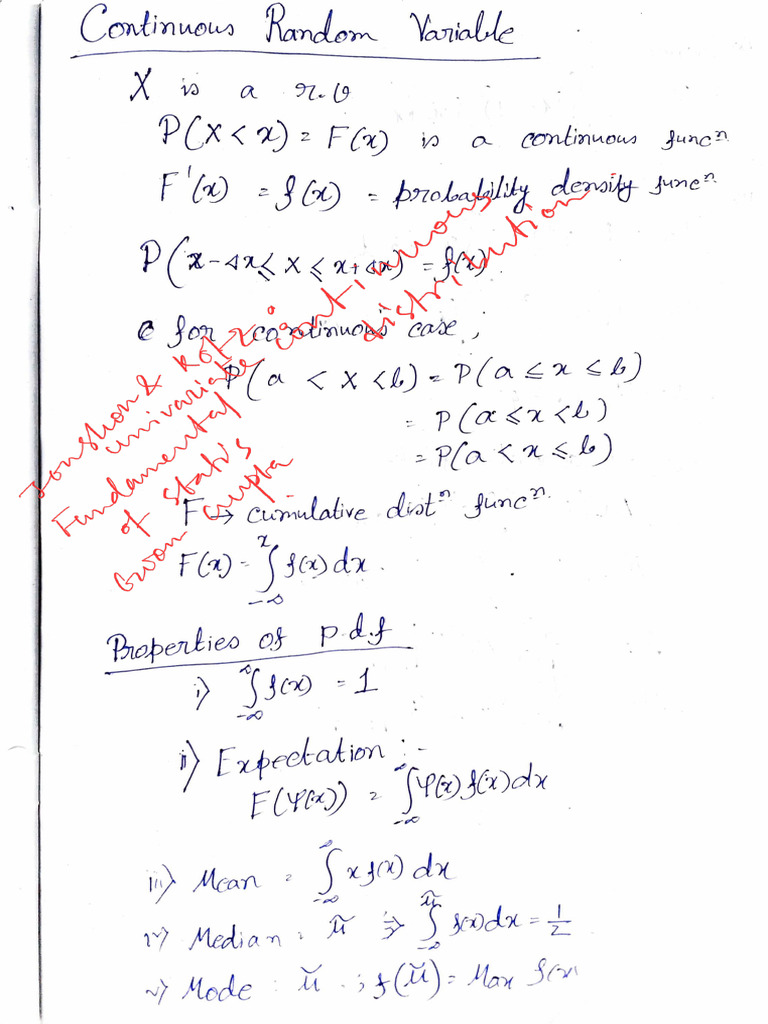 Continuous Random Variable
X is a r.v
P(X < x) = F(x) is a continuous funcⁿ
F'(x) = f(x) = probability density funcⁿ
P(x-Δx ≤ X ≤ x+Δx) = f(x).
for continuous case,
P(a < X < b) = P(a ≤ x ≤ b)
= P(a ≤ x < b)
= P(a < x ≤ b)
F → cumulative distⁿ funcⁿ.
F(x) = ∫_{-∞}^{x} f(x) dx.
Properties of p.d.f
i) ∫_{-∞}^{∞} f(x) = 1
ii) Expectation :-
E(φ(x)) = ∫_{-∞}^{∞} φ(x) f(x) dx
iii) Mean = ∫_{-∞}^{∞} x f(x) dx
iv) Median = μ̃ ⇒ ∫_{-∞}^{μ̃} f(x) dx = 1/2
v) Mode : μ̆ ; f(μ̆) = Max f(x)
Jonshon & Kotz: continuous
univariate distribution
Fundamental
of Statis
Goon Gupta